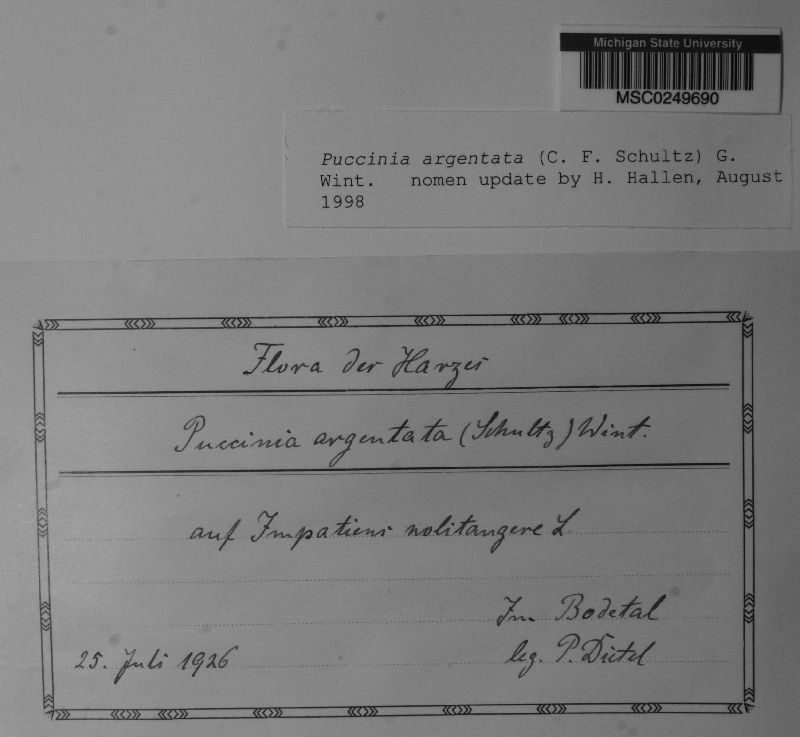 Michigan State University
MSC0249690
Puccinia argentata (C. F. Schultz) G.
Wint. nomen update by H. Hallen, August
1998
Flora des Harzes
Puccinia argentata (Schultz) Wint.
auf Impatiens nolitangere L
Im Bodetal
25. Juli 1926 leg. P. Dietel